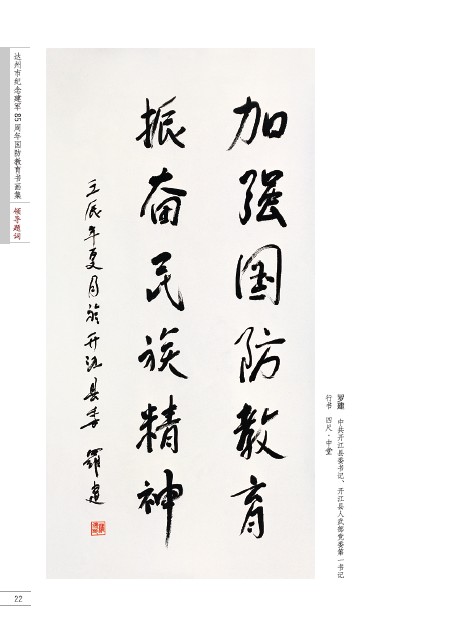 达州市纪念建军85周年国防教育书画集
领导题词
加强国防教育
振奋民族精神
壬辰年夏月於开江县委 罗建
罗建 中共开江县委书记、开江县人武部党委第一书记
行书 四尺·中堂
22